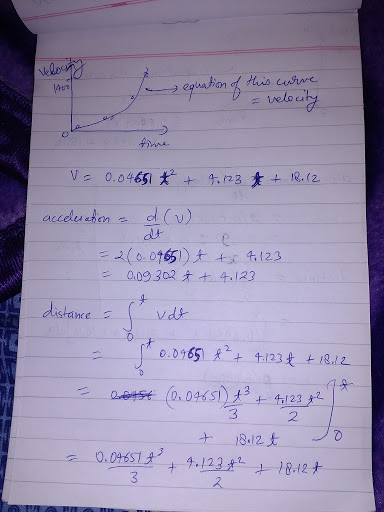 velocity
1400
→ equation of this curve
= velocity
0
time
V = 0.04651 t² + 4.123 t + 18.12
acceleration = d/dt (v)
= 2(0.04651) t + 4.123
= 0.09302 t + 4.123
distance = ∫₀ᵗ v dt
= ∫₀ᵗ 0.04651 t² + 4.123 t + 18.12
= (0.04651) t³/3 + 4.123 t²/2
+ 18.12 t ]₀ᵗ
= 0.04651 t³/3 + 4.123 t²/2 + 18.12 t